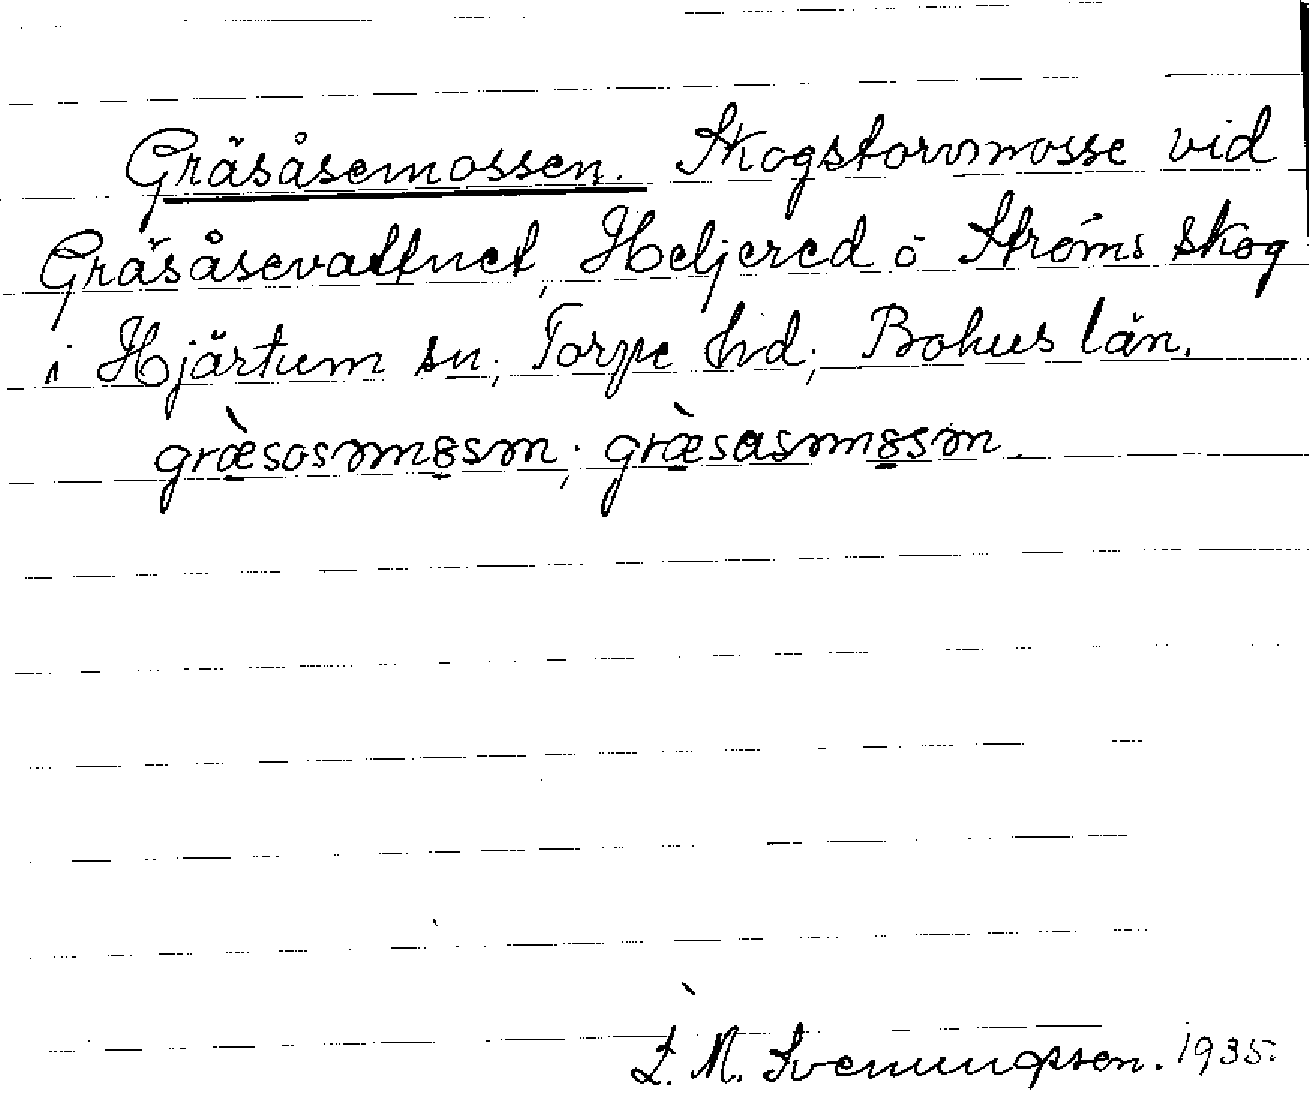 Gräsåsemossen. Skogstorvmosse vid
Gräsåsevattnet, Heljered ö Ströms skog
i Hjärtum sn; Torpe hd; Bohus län.
græ̀sosmmɞsm; græ̀sasmmɞsm.
L. M. Svenungsson. 1935.